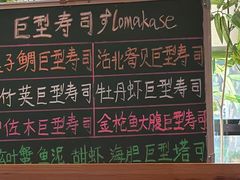 巨型寿司 omakase
子鲷巨型寿司 活北寄贝巨型寿司
竹荚巨型寿司 牡丹虾巨型寿司
佐木巨型寿司 金枪鱼大腹巨型寿司
松叶蟹鱼泥 胡虾 海胆巨型塔司